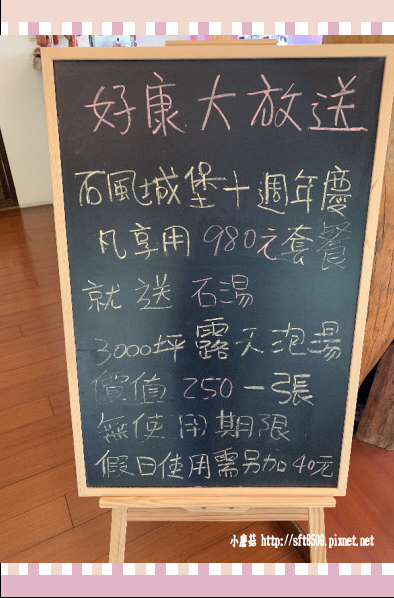 好康大放送
石風城堡十週年慶
凡享用980元套餐
就送石湯
3000坪露天泡湯
價值250一張
無使用期限
假日使用需另加40元
小蘑菇 http://sft8509.pixnet.net